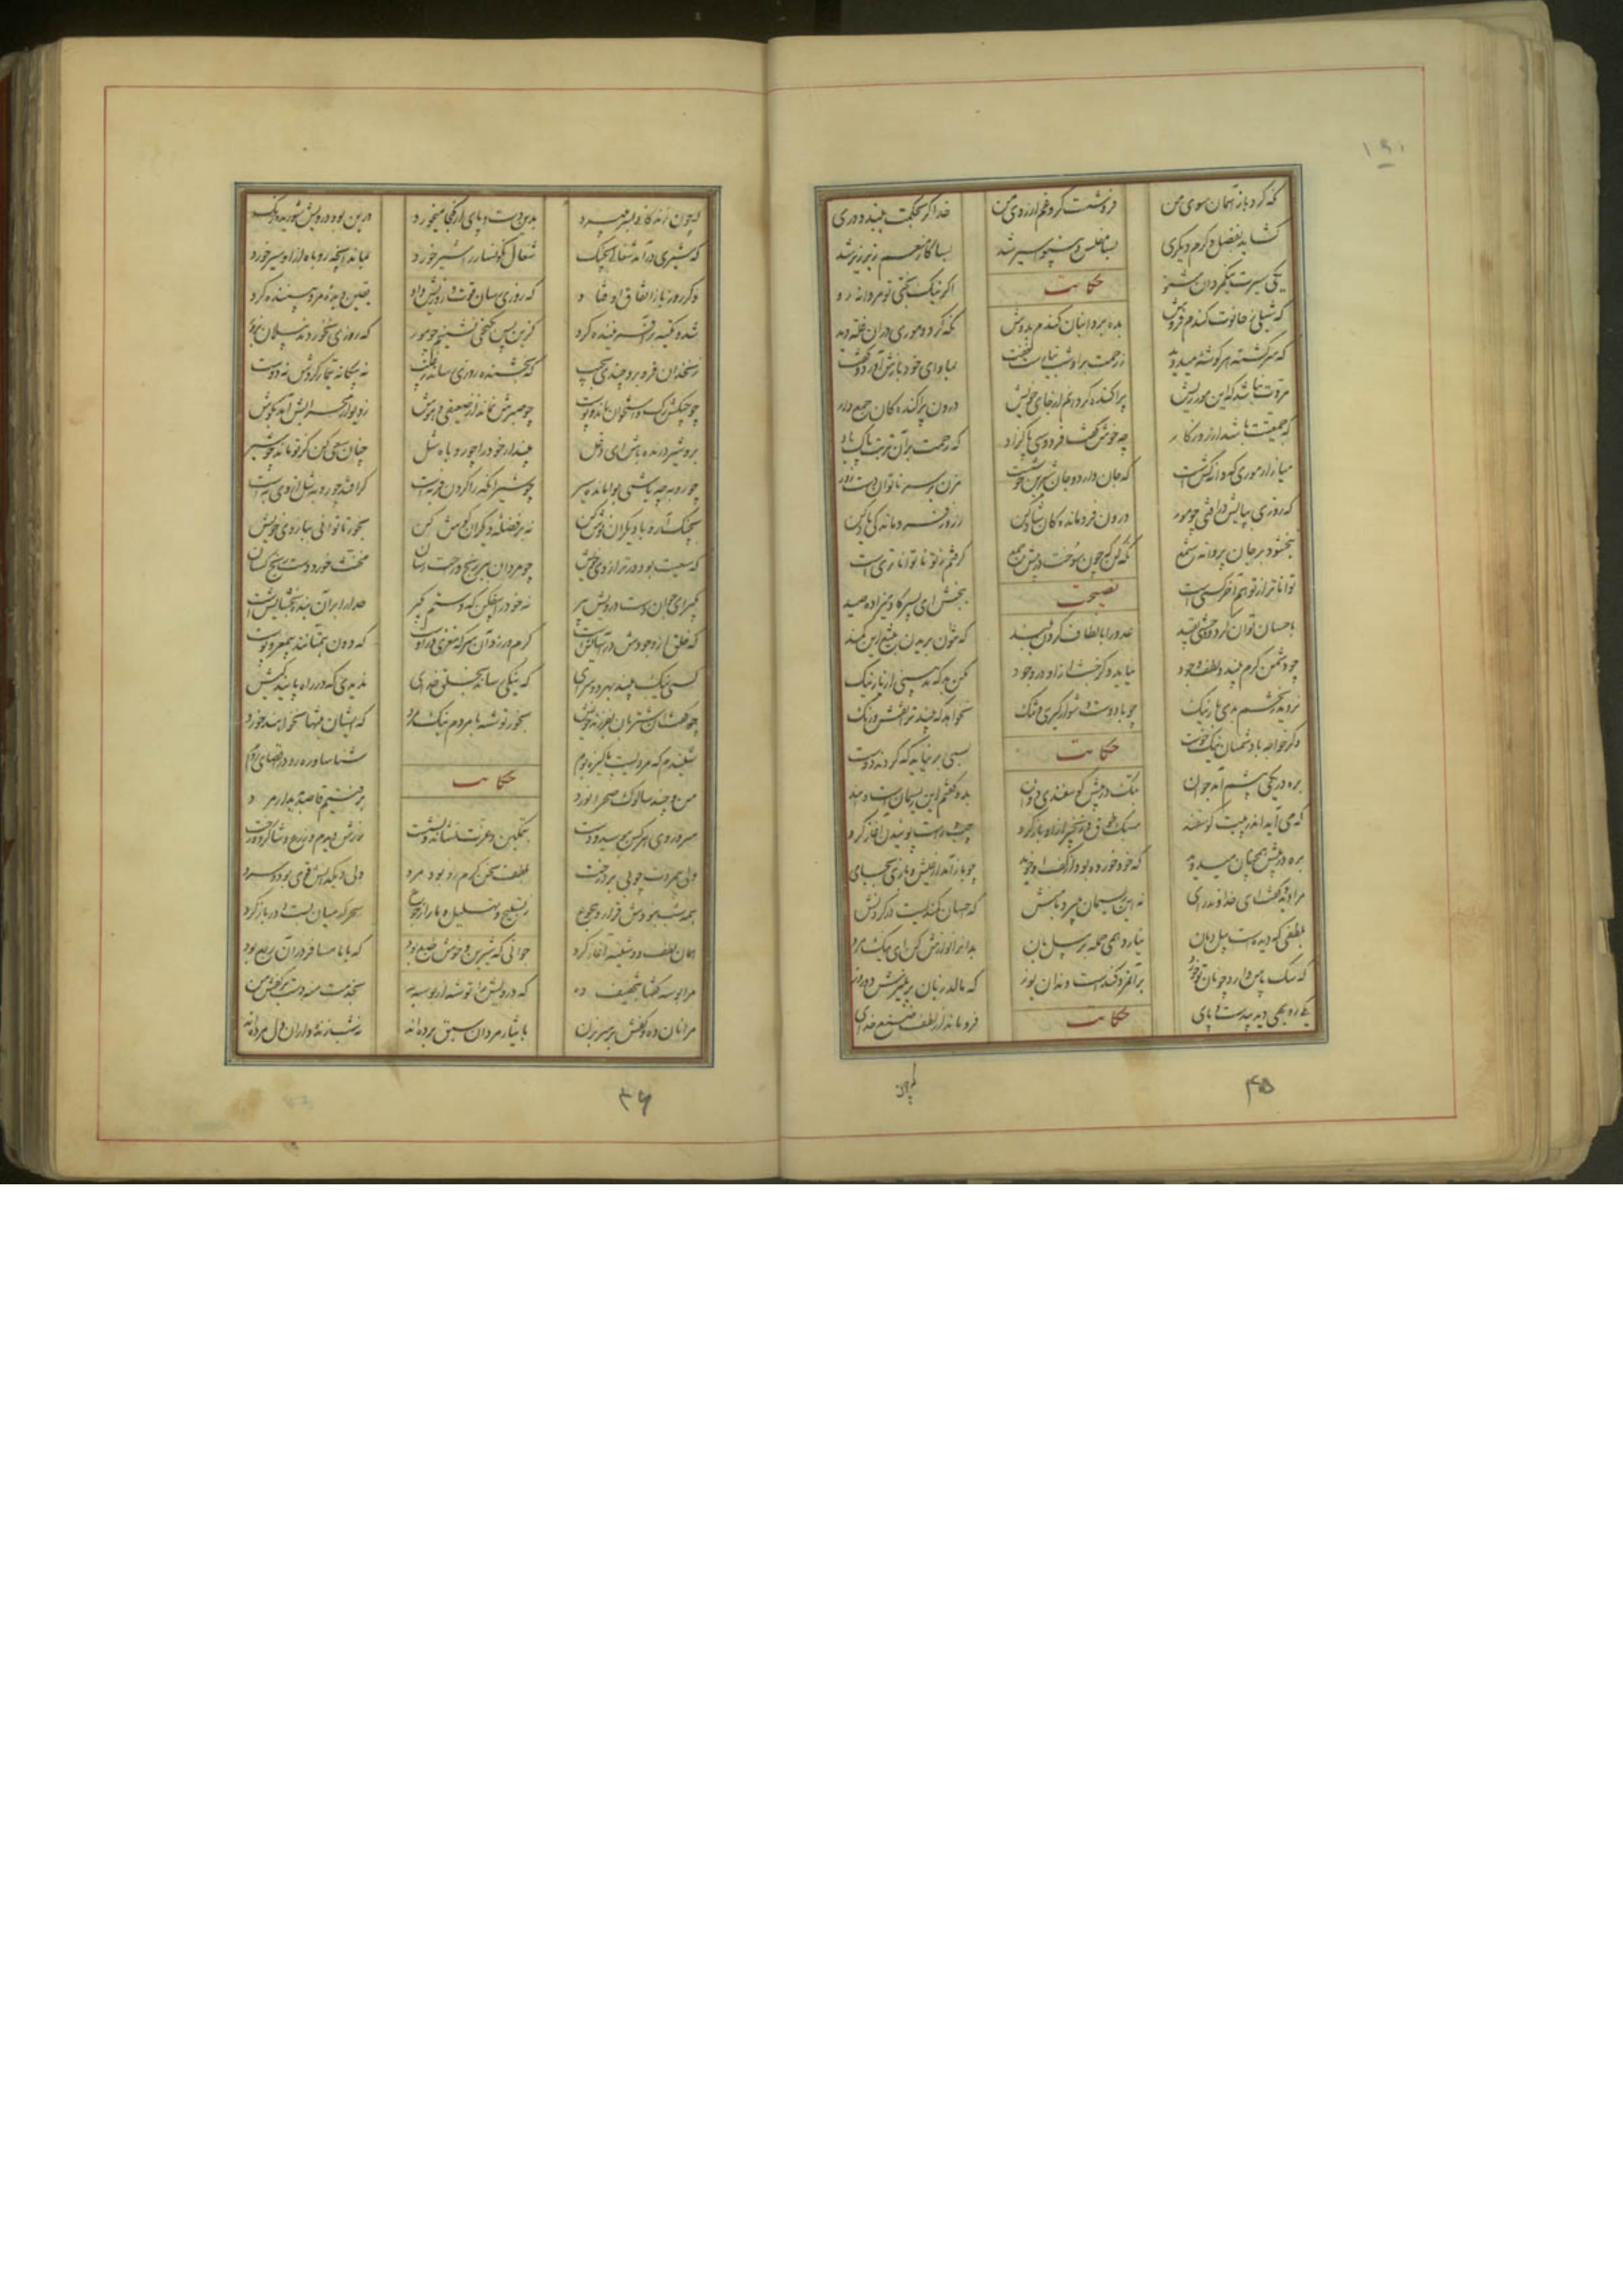 نگه کرد باز آسمان سوی من
فروشست گرد غم از روی من
خدا گر بحکمت ببندد دری
گشاید بفضل و کرم دیگری
بسا مفلس بینوا سیر شد
بسا کار منعم زبر زیر شد
حکایت
یکی سیرت نیکمردان شنو
اگر نیکبختی تو مردانه رو
که شبلی ز حانوت گندم فروش
بده برد انبان گندم بدوش
نگه کرد و موری در آن غله دید
که سرگشته هر گوشه میدوید
ز رحمت برو شب نیارست خفت
بماوای خود بازش آورد و گفت
مروت نباشد که این مور ریش
پراکنده گردانم از جای خویش
درون پراکندگان جمع دار
که جمعیتت باشد از روزگار
چه خوش گفت فردوسی پاکزاد
که رحمت بر آن تربت پاک باد
میازار موری که دانه کش است
که جان دارد و جان شیرین خوشست
مزن بر سر ناتوان دست زور
که روزی بپایش درافتی چو مور
درون فروماندگان شاد کن
ز روز فروماندگی یاد کن
نبخشود بر جان پروانه شمع
نگه کن که چون سوخت در پیش جمع
گرفتم ز تو ناتوانتر بسی است
تواناتر از تو هم آخر کسی است
نصیحت
ببخش ای پسر کادمیزاده صید
باحسان توان کرد و وحشی بقید
عدو را بالطاف گردن ببند
که نتوان بریدن بتیغ این کمند
چو دشمن کرم بیند و لطف و جود
نیاید دگر خبث ازو در وجود
مکن بد که بد بینی از یار نیک
نروید ز تخم بدی بار نیک
چو با دوست دشوار گیری و تنگ
نخواهد که بیند ترا نقش و رنگ
وگر خواجه با دشمنان نیکخوست
بسی بر نیاید که گردند دوست
حکایت
بره در یکی پیشم آمد جوان
بتک در پیش گوسفندی دوان
بدو گفتم این ریسمانست و بند
که می آید اندر پیت گوسفند
سبک طوق و زنجیر ازو باز کرد
چپ و راست پوئیدن آغاز کرد
بره در پیش همچنان میدوید
که خود خورده بود از کف او خوید
چو باز آمد از عیش و بازی بجای
مرا دید و گفت ای خداوند رای
نه این ریسمان میبرد با منش
که احسان کمندیست در گردنش
بلطفی که دیدست پیل دمان
نیارد همی حمله بر پیلبان
بدان را نوازش کن ای نیکمرد
که سگ پاس دارد چو نان تو خورد
بر آن مرد کندست دندان یوز
که مالد زبان بر پنیرش دو روز
حکایت
یکی روبهی دید بی دست و پای
فروماند در لطف و صنع خدای
۴۵
که چون
که چون زندگانی بسر میبرد
بدین دست و پای از کجا میخورد
درین بود درویش شوریده رنگ
که شیری درآمد شغالی بچنگ
شغال نگونسار را شیر خورد
بماند آنچه روباه ازو سیر خورد
دگر روز باز اتفاق اوفتاد
که روزی رسان قوت روزیش داد
یقین دیده مرد بیننده کرد
شد و تکیه بر آفریننده کرد
کزین پس بکنجی نشینم چو مور
که روزی نخوردند پیلان بزور
زنخدان فرو برد چندی بجیب
که بخشنده روزی رساند ز غیب
نه بیگانه تیمار کردش نه دوست
چو چنگش رگ و استخوان ماند و پوست
چو صبرش نماند از ضعیفی و هوش
ز دیوار محرابش آمد بگوش
برو شیر درنده باش ای دغل
مینداز خود را چو روباه شل
چنان سعی کن کز تو ماند چو شیر
چو روبه چه باشی بوامانده سیر
چو شیر آنکه را گردن فربه است
گر افتد چو روبه سگ از وی به است
بچنگ آر و با دیگران نوش کن
نه بر فضله دیگران گوش کن
بخور تا توانی ببازوی خویش
که سعیت بود در ترازوی خویش
چو مردان ببر رنج و راحت رسان
مخنث خورد دست رنج کسان
بگیر ای جوان دست درویش پیر
نه خود را بیفکن که دستم بگیر
خدا را بر آن بنده بخشایش است
که خلق از وجودش در آسایش است
کرم ورزد آن سر که مغزی دروست
که دون همتانند بیمغز و پوست
کسی نیک بیند بهر دو سرای
که نیکی رساند بخلق خدای
ندیدی که در راه
چو گفت آن شتربان بفرزند خویش
بخور توشه با مردم نیک مرد
که ایشان تنها نخواهند خورد
حکایت
شنیدم که مردیست پاکیزه بوم
شناسا و رهرو در اقصای روم
من و چند سالوک صحرا نورد
برفتیم قاصد بدیدار مرد
سر و روی هر کس ببوسید و دست
بتمکین و عزت نشاند و نشست
زرش دیدم و زرع و شاگرد و رخت
ولی بیمروت چو بی بر درخت
بلطف سخن گرم رو بود مرد
ولی دیگدانش قوی بود سرد
همه شب نبودش قرار و هجوع
ز تسبیح و تهلیل و ما را ز جوع
سحرگه میان بست و در باز کرد
همان لطف دوشینه آغاز کرد
جوانی که شیرین و خوش طبع بود
که با ما مسافر در آن ربع بود
مرا بوسه گفتا بتصحیف ده
که درویش را توشه از بوسه به
بخدمت منه دست بر کفش من
مرا نان ده و کفش بر سر بزن
بایثار مردان سبق برده اند
نه شب زنده داران دل مرده اند
۴۶